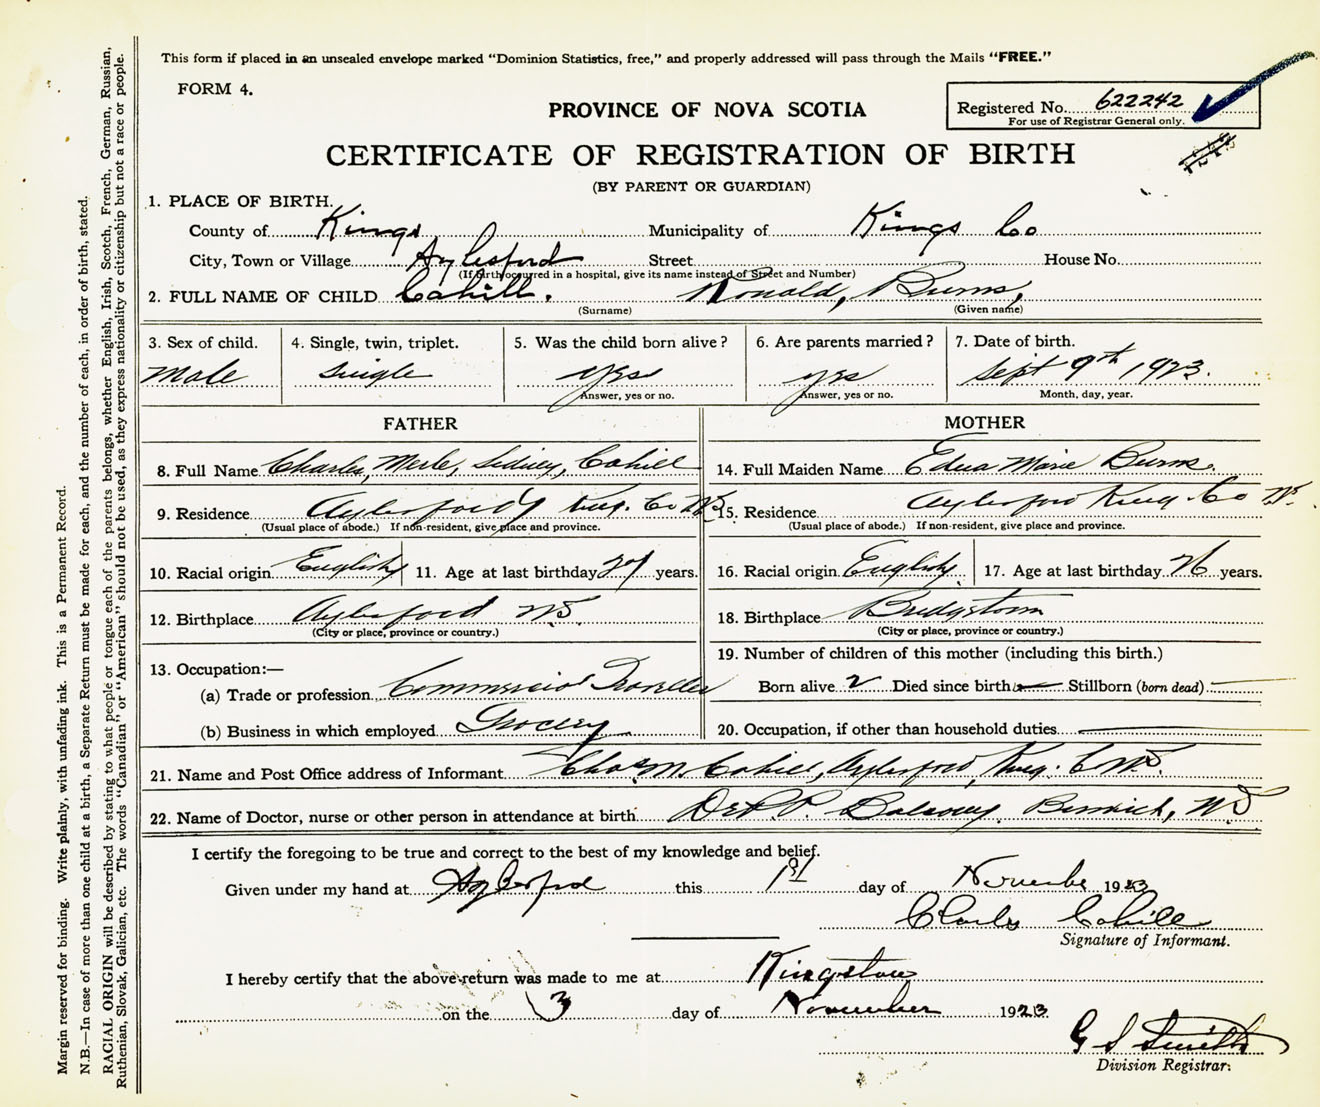 This form if placed in an unsealed envelope marked "Dominion Statistics, free," and properly addressed will pass through the Mails "FREE."
FORM 4.
Registered No. 622242
For use of Registrar General only.
PROVINCE OF NOVA SCOTIA
CERTIFICATE OF REGISTRATION OF BIRTH
(BY PARENT OR GUARDIAN)
1. PLACE OF BIRTH.
County of Kings Municipality of Kings Co
City, Town or Village Aylesford Street House No.
(If birth occurred in a hospital, give its name instead of Street and Number)
2. FULL NAME OF CHILD Cahill. Ronald, Burns,
(Surname) (Given name)
3. Sex of child. 4. Single, twin, triplet. 5. Was the child born alive? 6. Are parents married? 7. Date of birth.
Male Single yes yes Sept 9th 1923.
Answer, yes or no. Answer, yes or no. Month, day, year.
FATHER MOTHER
8. Full Name Charles, Merle, Sidney, Cahill 14. Full Maiden Name Edna Marie Burns.
9. Residence Aylesford King. Co NS 15. Residence Aylesford King Co NS.
(Usual place of abode.) If non-resident, give place and province. (Usual place of abode.) If non-resident, give place and province.
10. Racial origin English 11. Age at last birthday years. 16. Racial origin English 17. Age at last birthday 26 years.
12. Birthplace Aylesford NS. 18. Birthplace Bridgetown
(City or place, province or country.) (City or place, province or country.)
13. Occupation:— 19. Number of children of this mother (including this birth.)
(a) Trade or profession Commercial Traveller Born alive 2 Died since birth — Stillborn (born dead) —
(b) Business in which employed Grocery 20. Occupation, if other than household duties —
21. Name and Post Office address of Informant Chas. M. Cahill, Aylesford, King. C NS.
22. Name of Doctor, nurse or other person in attendance at birth Dr P. P. Balcom Berwick, NS
I certify the foregoing to be true and correct to the best of my knowledge and belief.
Given under my hand at Aylesford this 1st day of November 1923
Charles Cahill
Signature of Informant.
I hereby certify that the above return was made to me at Kingston
on the 3 day of November 1923
G S Smith
Division Registrar.
Margin reserved for binding. Write plainly, with unfading ink. This is a Permanent Record.
N.B.—In case of more than one child at a birth, a Separate Return must be made for each, and the number of each, in order of birth, stated.
RACIAL ORIGIN will be described by stating to what people or tongue each of the parents belongs, whether English, Irish, Scotch, French, German, Russian,
Ruthenian, Slovak, Galician, etc. The words "Canadian" or "American" should not be used, as they express nationality or citizenship but not a race or people.